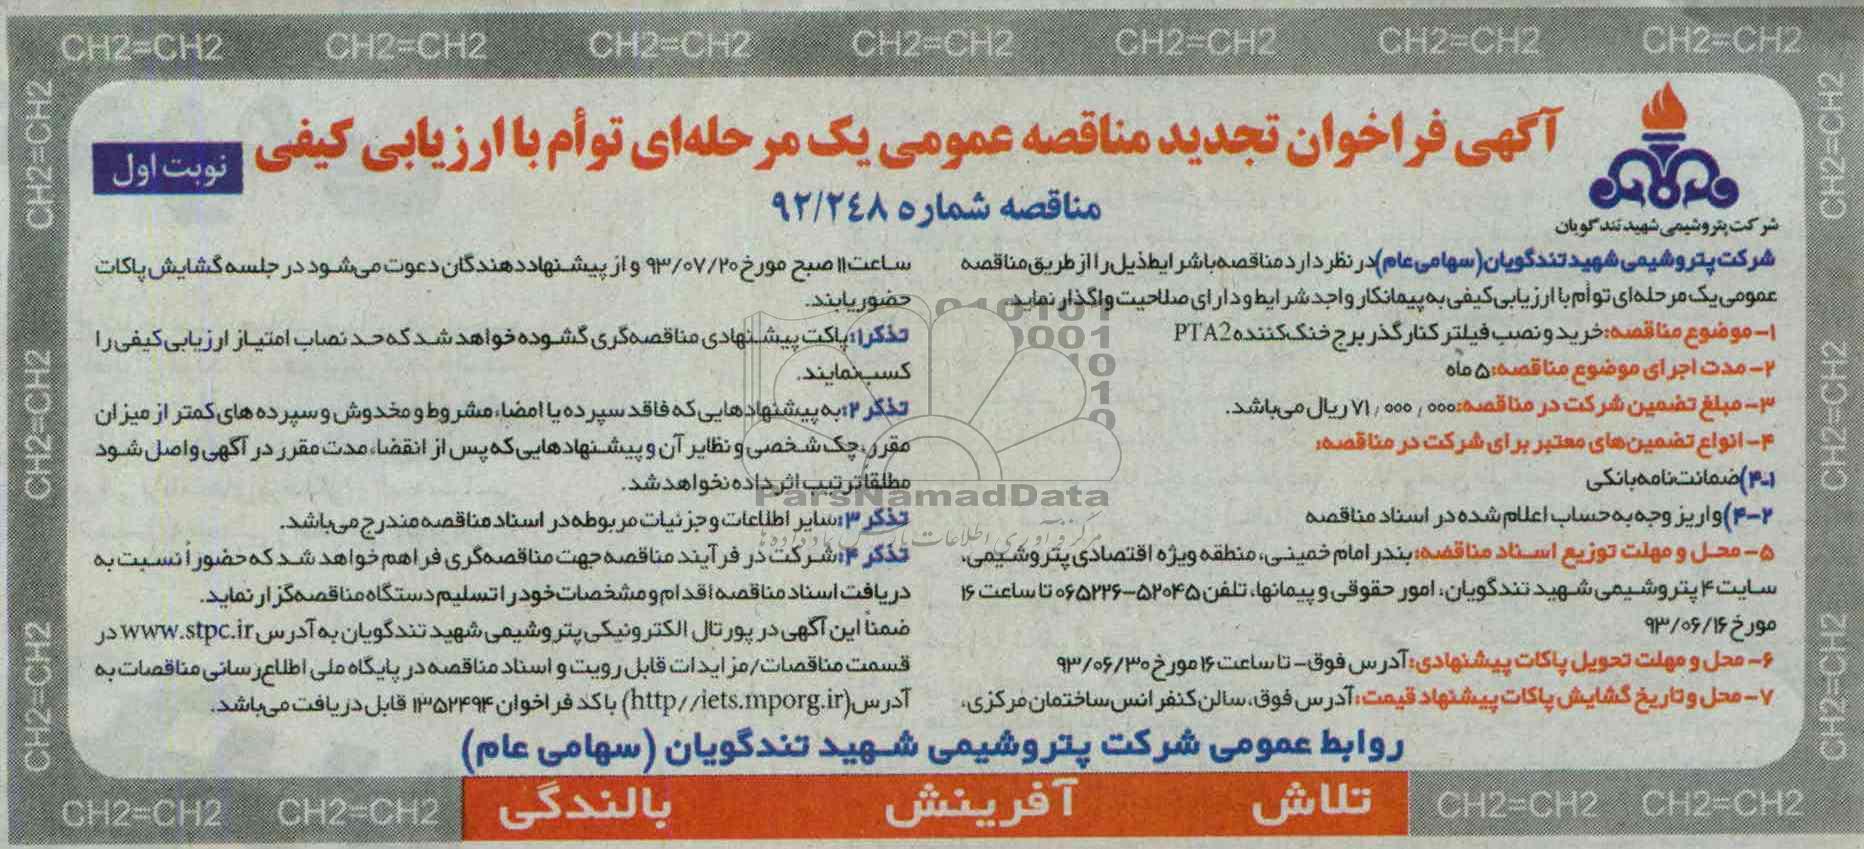 CH2=CH2 CH2=CH2 CH2=CH2 CH2=CH2 CH2=CH2 CH2=CH2 CH2=CH2
آگهی فراخوان تجدید مناقصه عمومی یک مرحله‌ای توأم با ارزیابی کیفی
نوبت اول
مناقصه شماره ۹۲/۲۴۸
شرکت پتروشیمی شهید تندگویان
شرکت پتروشیمی شهید تندگویان (سهامی عام) در نظر دارد مناقصه با شرایط ذیل را از طریق مناقصه
عمومی یک مرحله‌ای توأم با ارزیابی کیفی به پیمانکار واجد شرایط و دارای صلاحیت واگذار نماید.
۱- موضوع مناقصه: خرید و نصب فیلتر کنار گذر برج خنک‌کننده PTA2
۲- مدت اجرای موضوع مناقصه: ۵ ماه
۳- مبلغ تضمین شرکت در مناقصه: ۷۱,۰۰۰,۰۰۰ ریال می‌باشد.
۴- انواع تضمین‌های معتبر برای شرکت در مناقصه:
۴-۱) ضمانت‌نامه بانکی
۴-۲) واریز وجه به حساب اعلام شده در اسناد مناقصه
۵- محل و مهلت توزیع اسناد مناقصه: بندر امام خمینی، منطقه ویژه اقتصادی پتروشیمی،
سایت ۴ پتروشیمی شهید تندگویان، امور حقوقی و پیمانها، تلفن ۵۲۰۴۵-۰۶۵۲۲۶ تا ساعت ۱۶
مورخ ۹۳/۰۶/۱۶
۶- محل و مهلت تحویل پاکات پیشنهادی: آدرس فوق- تا ساعت ۱۶ مورخ ۹۳/۰۶/۳۰
۷- محل و تاریخ گشایش پاکات پیشنهاد قیمت: آدرس فوق، سالن کنفرانس ساختمان مرکزی،
ساعت ۱۱ صبح مورخ ۹۳/۰۷/۲۰ و از پیشنهاددهندگان دعوت می‌شود در جلسه گشایش پاکات
حضور یابند.
تذکر ۱: پاکت پیشنهادی مناقصه‌گری گشوده خواهد شد که حد نصاب امتیاز ارزیابی کیفی را
کسب نمایند.
تذکر ۲: به پیشنهادهایی که فاقد سپرده یا امضاء، مشروط و مخدوش و سپرده‌های کمتر از میزان
مقرر، چک شخصی و نظایر آن و پیشنهادهایی که پس از انقضاء مدت مقرر در آگهی واصل شود
مطلقاً ترتیب اثر داده نخواهد شد.
تذکر ۳: سایر اطلاعات و جزئیات مربوطه در اسناد مناقصه مندرج می‌باشد.
تذکر ۴: شرکت در فرآیند مناقصه جهت مناقصه‌گری فراهم خواهد شد که حضوراً نسبت به
دریافت اسناد مناقصه اقدام و مشخصات خود را تسلیم دستگاه مناقصه‌گزار نماید.
ضمناً این آگهی در پورتال الکترونیکی پتروشیمی شهید تندگویان به آدرس www.stpc.ir در
قسمت مناقصات/مزایدات قابل رویت و اسناد مناقصه در پایگاه ملی اطلاع‌رسانی مناقصات به
آدرس (http//iets.mporg.ir) با کد فراخوان ۱۳۵۲۴۹۴ قابل دریافت می‌باشد.
روابط عمومی شرکت پتروشیمی شهید تندگویان (سهامی عام)
تلاش آفرینش بالندگی
CH2=CH2 CH2=CH2 CH2=CH2 CH2=CH2
CH2=CH2 CH2=CH2 CH2=CH2
CH2=CH2 CH2=CH2 CH2=CH2
ParsNamadData